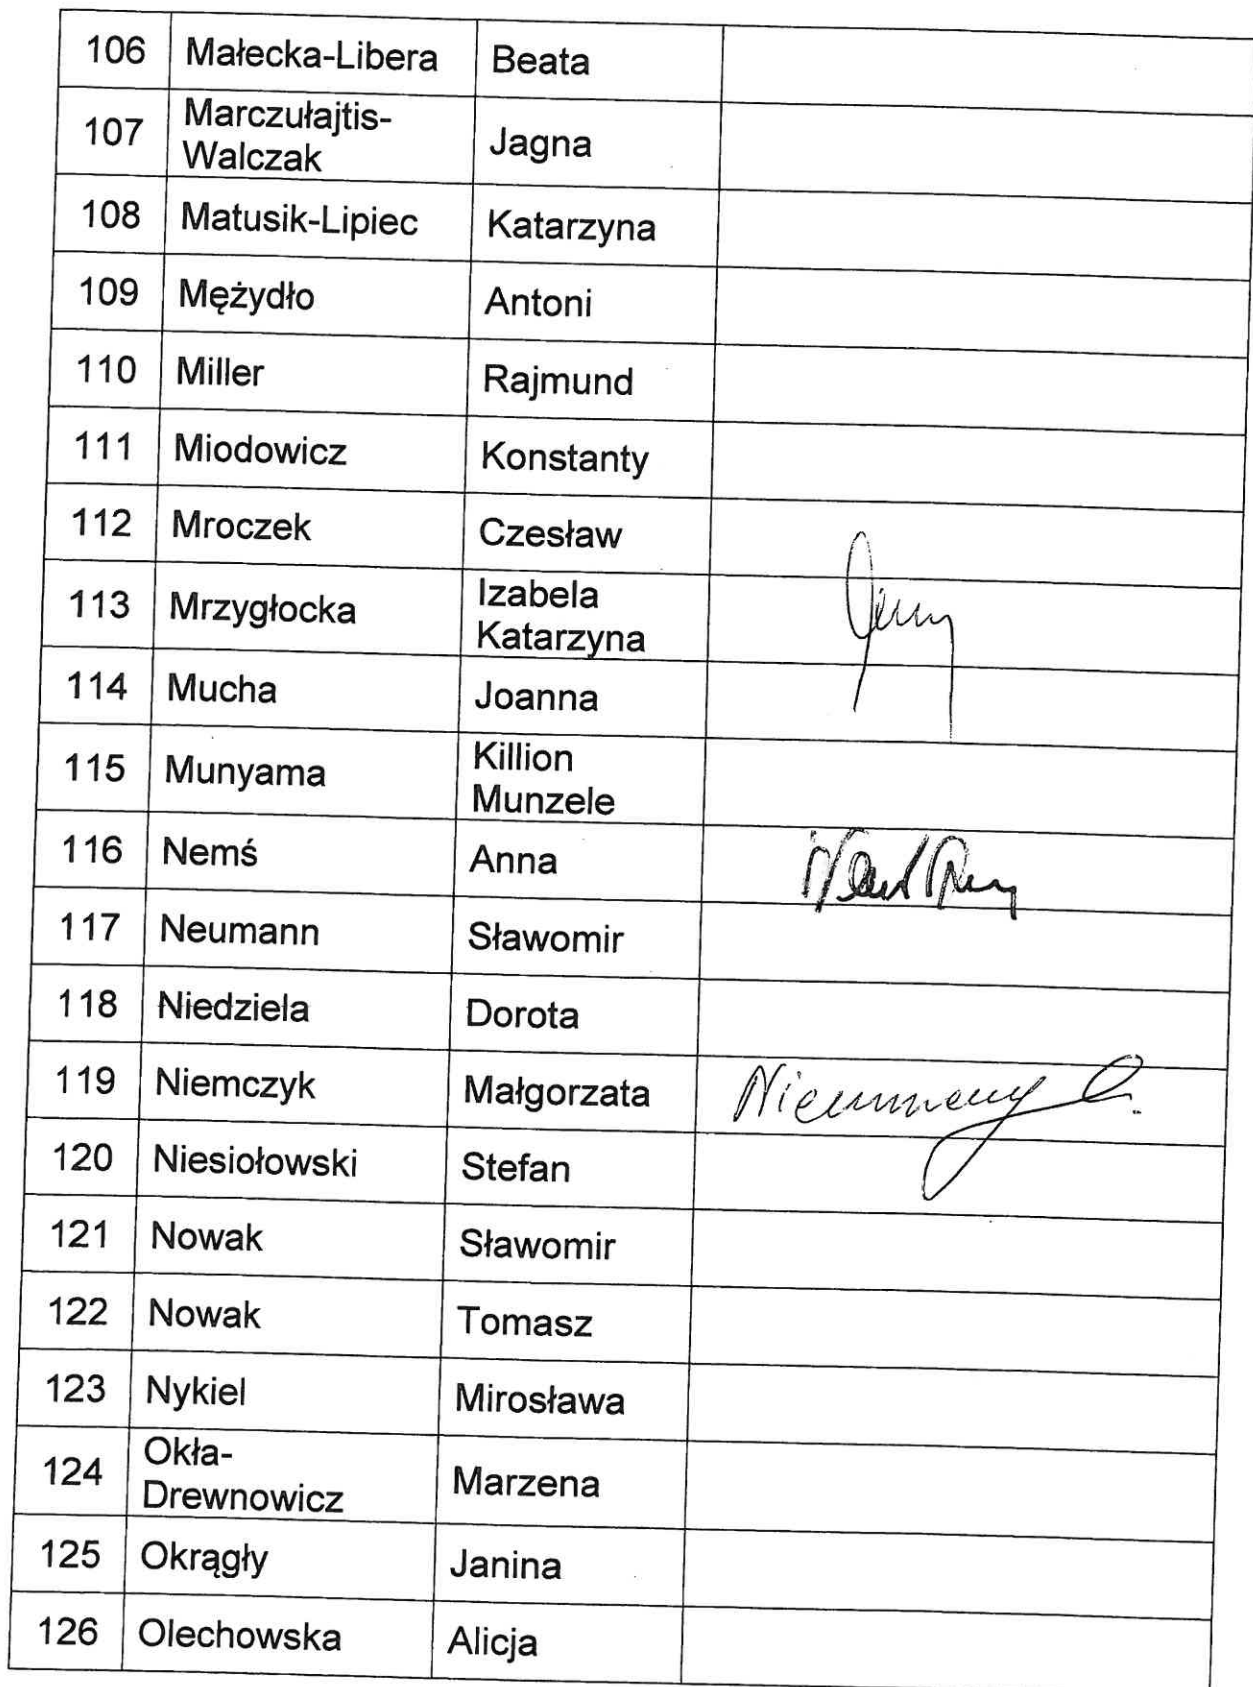 106 Małecka-Libera Beata
107 Marczułajtis-
Walczak Jagna
108 Matusik-Lipiec Katarzyna
109 Mężydło Antoni
110 Miller Rajmund
111 Miodowicz Konstanty
112 Mroczek Czesław
113 Mrzygłocka Izabela
Katarzyna
114 Mucha Joanna
115 Munyama Killion
Munzele
116 Nemś Anna
117 Neumann Sławomir
118 Niedziela Dorota
119 Niemczyk Małgorzata
120 Niesiołowski Stefan
121 Nowak Sławomir
122 Nowak Tomasz
123 Nykiel Mirosława
124 Okła-
Drewnowicz Marzena
125 Okrągły Janina
126 Olechowska Alicja